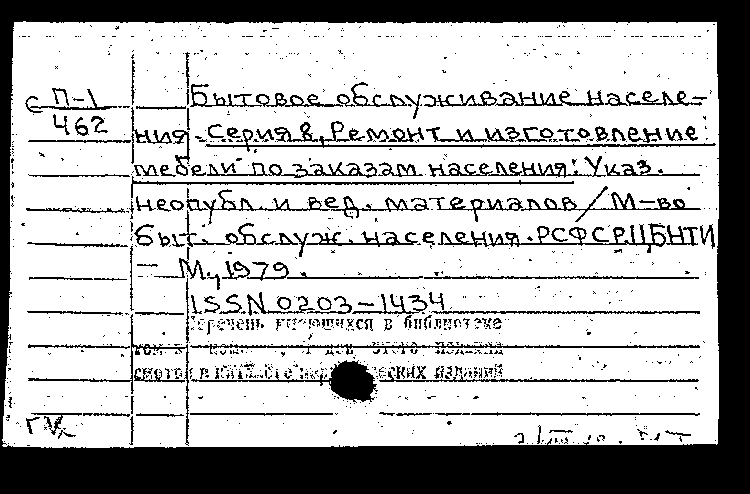 С П-1
462
Бытовое обслуживание населе-
ния. Серия 8, Ремонт и изготовление
мебели по заказам населения: Указ.
неопубл. и вед. материалов / М-во
быт. обслуж. населения. РСФСР. ЦБНТИ
— М., 1979.
ISSN 0203-1434
Перечень имеющихся в библиотеке
этого издания
смотри в изданий